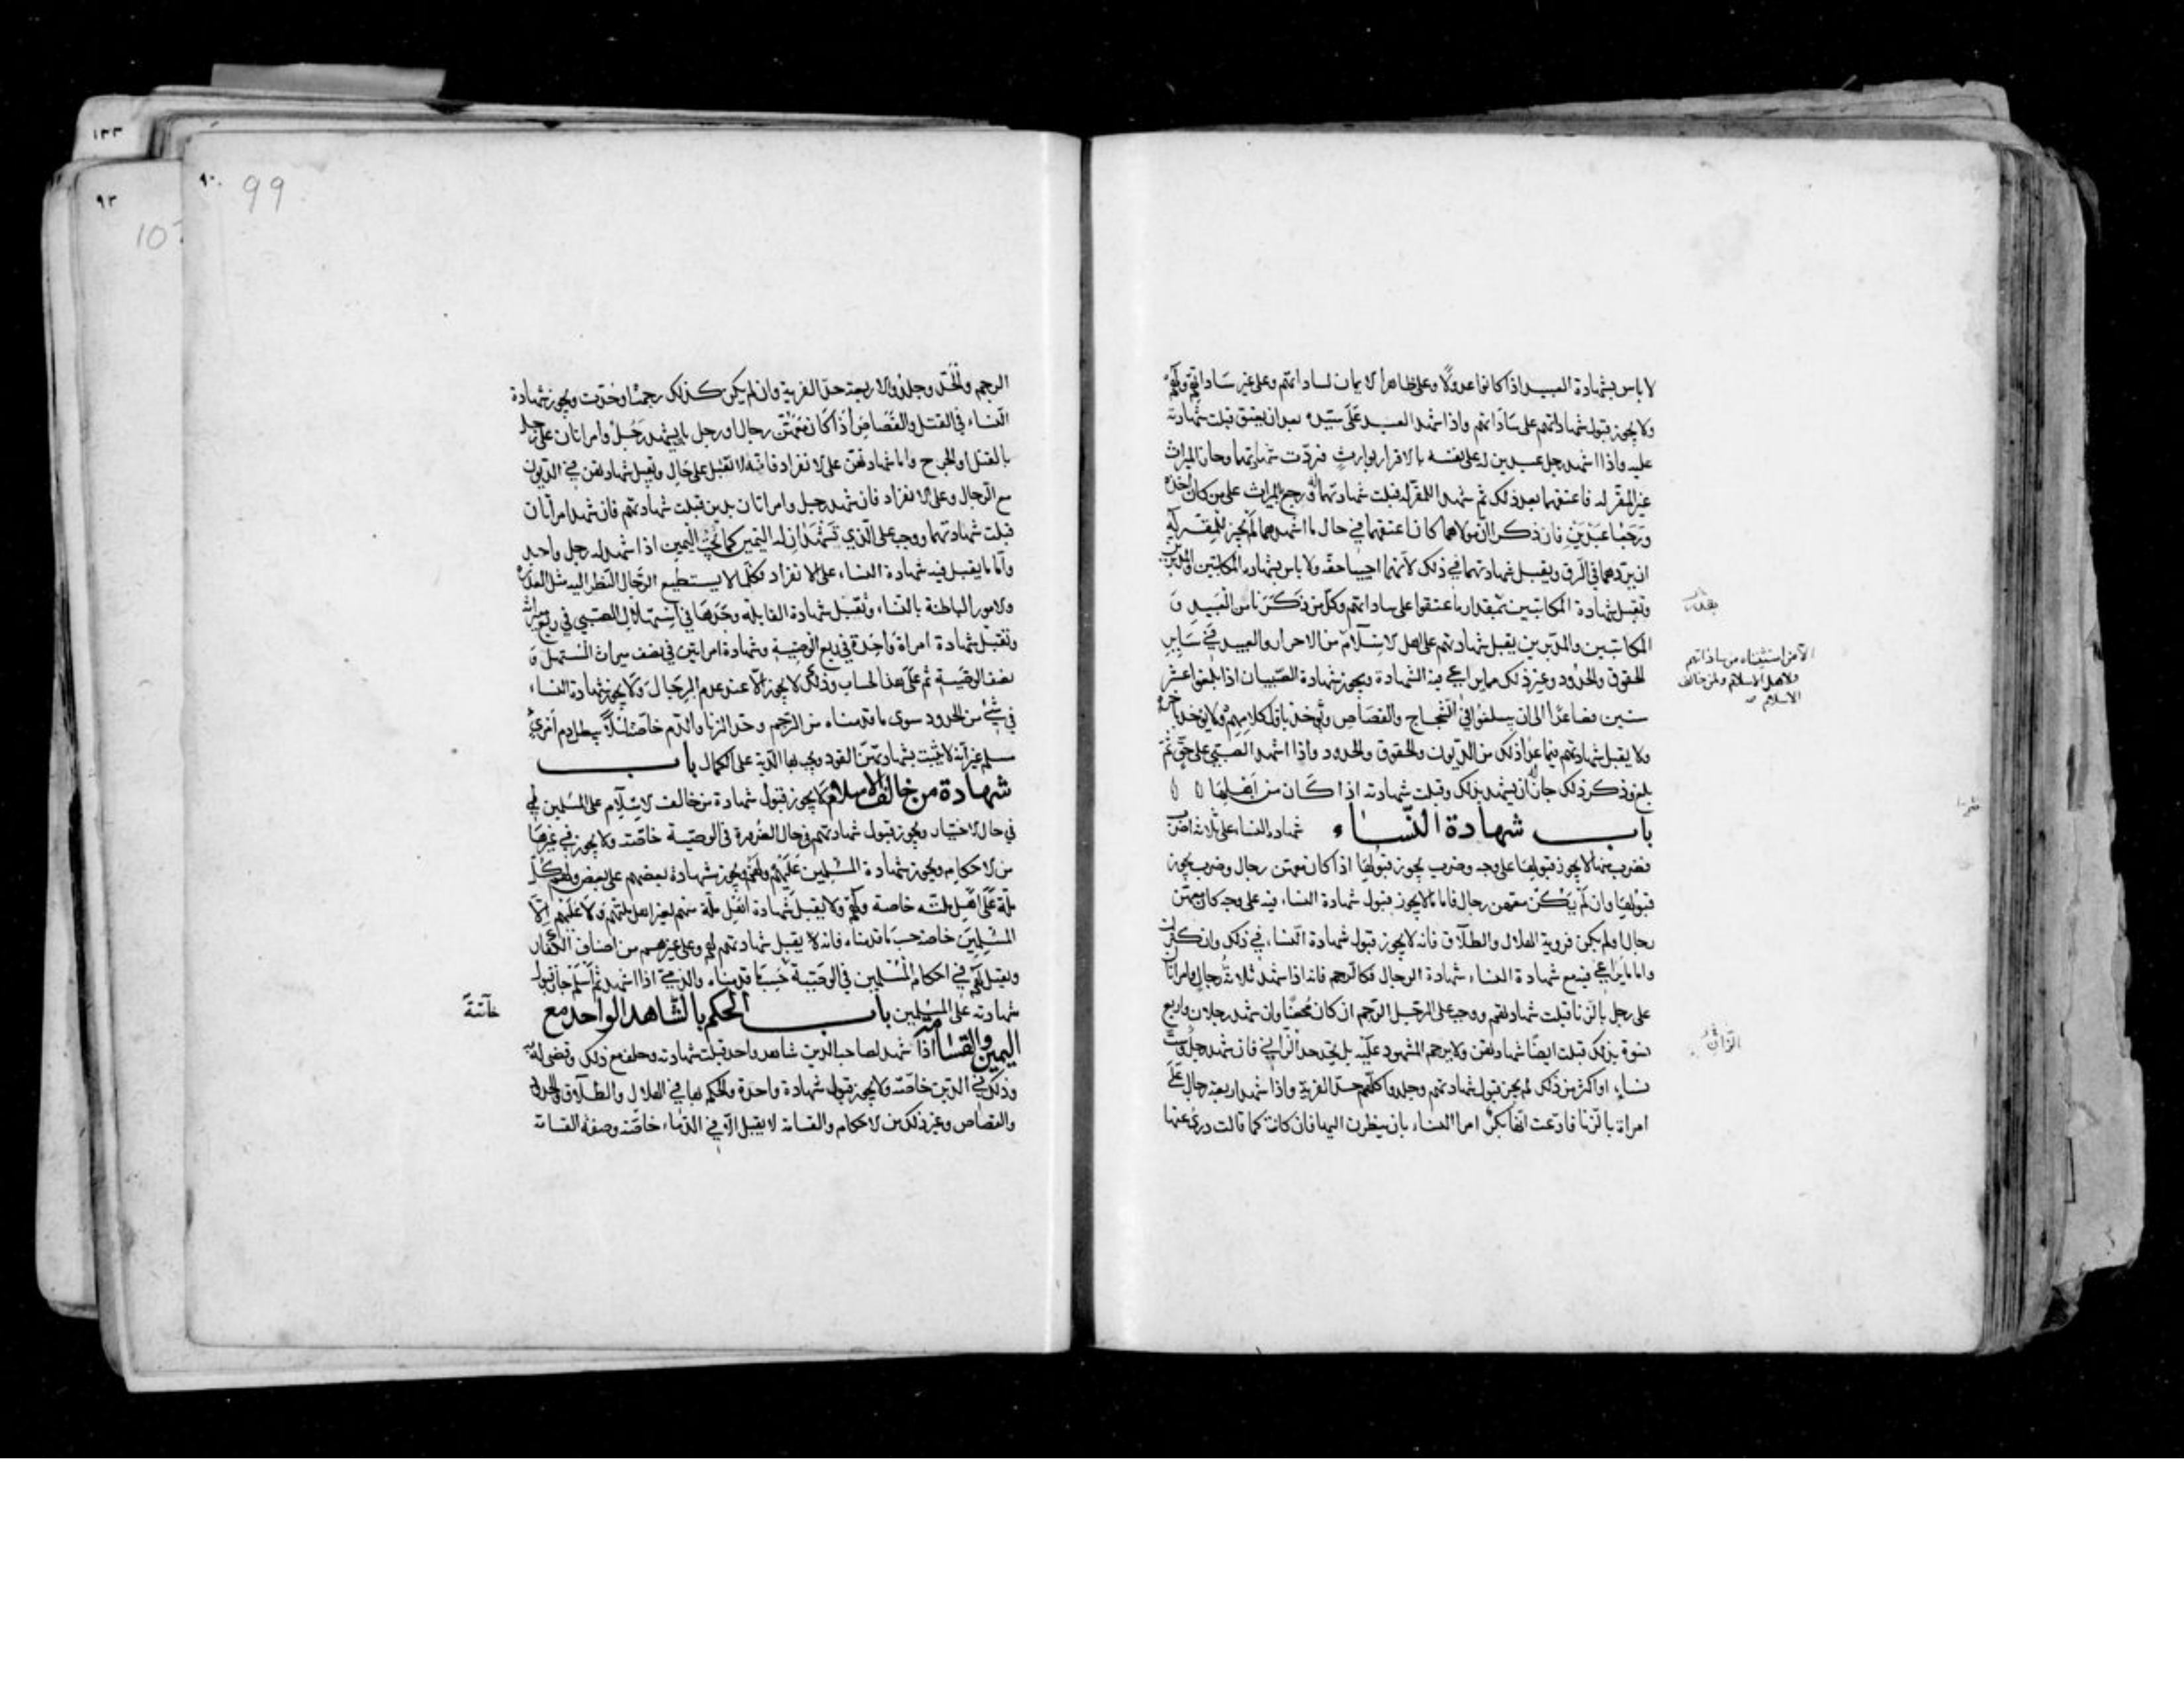 لا باس بشهادة العبيد اذا كانوا عدولًا وعلى ظاهر الايمان لساداتهم وعلى غير ساداتهم ولهم
ولا يجوز قبول شهاداتهم على ساداتهم واذا شهد العبد على سيده بعد ان يعتق قبلت شهادته
عليه واذا اشهد رجل عبدين له على نفسه بالاقرار بوارث فردّت شهادتهما وحاز الميراث
غير المقر له فاعتقهما بعد ذلك ثم شهدا للمقر له قبلت شهادتهما له ورجع الميراث على من كان اخذه
ورجعا عبدين فان ذكرا ان مولاهما كان اعتقهما في حال ما اشهدهما لم يجز للمقر له
ان يردهما في الرق ويقبل شهادتهما في ذلك لانهما احييا حقه ولا باس بشهادة المكاتبين والمدبرين
وتقبل شهادة المكاتبين بمقدار ما عتقوا على ساداتهم وكل من ذكرنا من العبيد و
المكاتبين والمدبرين يقبل شهادتهم على اهل الاسلام من الاحرار والعبيد في ساير
الحقوق والحدود وغير ذلك مما يراعى فيه الشهادة ويجوز شهادة الصبيان اذا بلغوا عشر
سنين فصاعدًا الى ان يبلغوا في الشجاج والقصاص ويؤخذ باول كلامهم ولا يؤخذ باخره
ولا يقبل شهادتهم فيما عدا ذلك من الديون والحقوق والحدود واذا اشهد الصبي على حق ثم
بلغ وذكر ذلك جاز له ان يشهد بذلك وقبلت شهادته اذا كان من اهلها
باب شهادة النساء شهادة النساء على ثلاثة اضرب
فضرب منها لا يجوز قبولها على وجه وضرب يجوز قبولها اذا كان معهن رجال وضرب يجوز
قبولها وان لم يكن معهن رجال فاما ما لا يجوز قبول شهادة النساء فيه على وجه كان معهن
رجال او لم يكن فروية الهلال والطلاق فانه لا يجوز قبول شهادة النساء في ذلك وان كثرن
واما ما يراعى فيه مع شهادة النساء شهادة الرجال فكالرجم فانه اذا شهد ثلاثة رجال وامراتان
على رجل بالزنا قبلت شهادتهم ووجب على الرجل الرجم ان كان محصنًا وان شهد رجلان واربع
نسوة بذلك قبلت ايضًا شهادتهن ولا يرجم المشهود عليه بل يحد حد الزاني فان شهد رجل وست
نساء او اكثر من ذلك لم يجز قبول شهادتهم وجلدوا كلهم حد الفرية واذا شهد اربعة رجال على
امراة بالزنا فادعت انها بكر امر النساء بان ينظرن اليها فان كانت كما قالت درئ عنها
الا من استثناه من ساداتهم
ولاهل الاسلام ولمن خالف
الاسلام
٩٠
99
٩٣
١٣٣
الرجم والحد وجلدوا الاربعة حد الفرية وان لم يكن كذلك رجمت او حدت ويجوز شهادة
النساء في القتل والقصاص اذا كان معهن رجال او رجل بان يشهد رجل وامراتان على رجل
بالقتل او الجرح واما شهادتهن على الانفراد فانه لا تقبل على حال وتقبل شهادتهن في الديون
مع الرجال وعلى الانفراد فان شهد رجل وامراتان بدين قبلت شهادتهم فان شهد امراتان
قبلت شهادتهما ووجب على الذي تشهدان له اليمين كما تجب اليمين اذا شهد له رجل واحد
واما ما يقبل فيه شهادة النساء على الانفراد فكلما لا يستطيع الرجال النظر اليه مثل العذرة
والامور الباطنة بالنساء وتقبل شهادة القابلة وحدها في استهلال الصبي في ربع ميراثه
وتقبل شهادة امراة واحدة في ربع الوصية وشهادة امراتين في نصف ميراث المستهل و
نصف الوصية ثم على هذا الحساب وذلك لا يجوز الا عند عدم الرجال ولا يجوز شهادة النساء
في شئ من الحدود سوى ما قدمناه من الرجم وحد الزنا والدم خاصة لئلا يبطل دم امرئ
مسلم غير انه لا يثبت بشهادتهن القود ويجب بها الدية على الكمال باب
شهادة من خالف الاسلام لا يجوز قبول شهادة من خالف الاسلام على المسلمين
في حال الاختيار ويجوز قبول شهادتهم في حال الضرورة في الوصية خاصة ولا يجوز في غيرها
من الاحكام ويجوز شهادة المسلمين عليهم ولهم ويجوز شهادة بعضهم على بعض ولهم كل
ملة على اهل ملته خاصة ولهم ولا يقبل شهادة اهل ملة منهم لغير اهل ملتهم ولا عليهم الا
المسلمين خاصة حسب ما قدمناه فانه لا يقبل شهادتهم لهم وعلى غيرهم من اصناف الكفار
ويقبل لهم في احكام المسلمين في الوصية حسب ما قدمناه والذمي اذا اشهد ثم اسلم جاز قبول
شهادته على المسلمين باب الحكم بالشاهد الواحد مع
اليمين والقسامة اذا شهد لصاحب الدين شاهد واحد قبلت شهادته وحلف مع ذلك وقضي له به
وذلك في الدين خاصة ولا يجوز قبول شهادة واحدة والحكم بها في الهلال والطلاق والحدود
والقصاص وغير ذلك من الاحكام والقسامة لا يقبل الا في الدماء خاصة وصفة القسامة